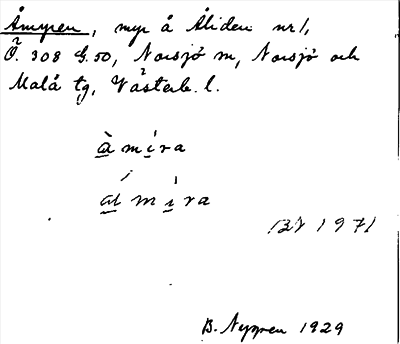 Åmyren, myr å Åliden nr 1,
Ö. 308 G. 50, Norsjö sn, Norsjö och
Malå tg, Västerb. l.
å̀ m i̇ r a
ål m i r a
BN 1971
B. Nygren 1929